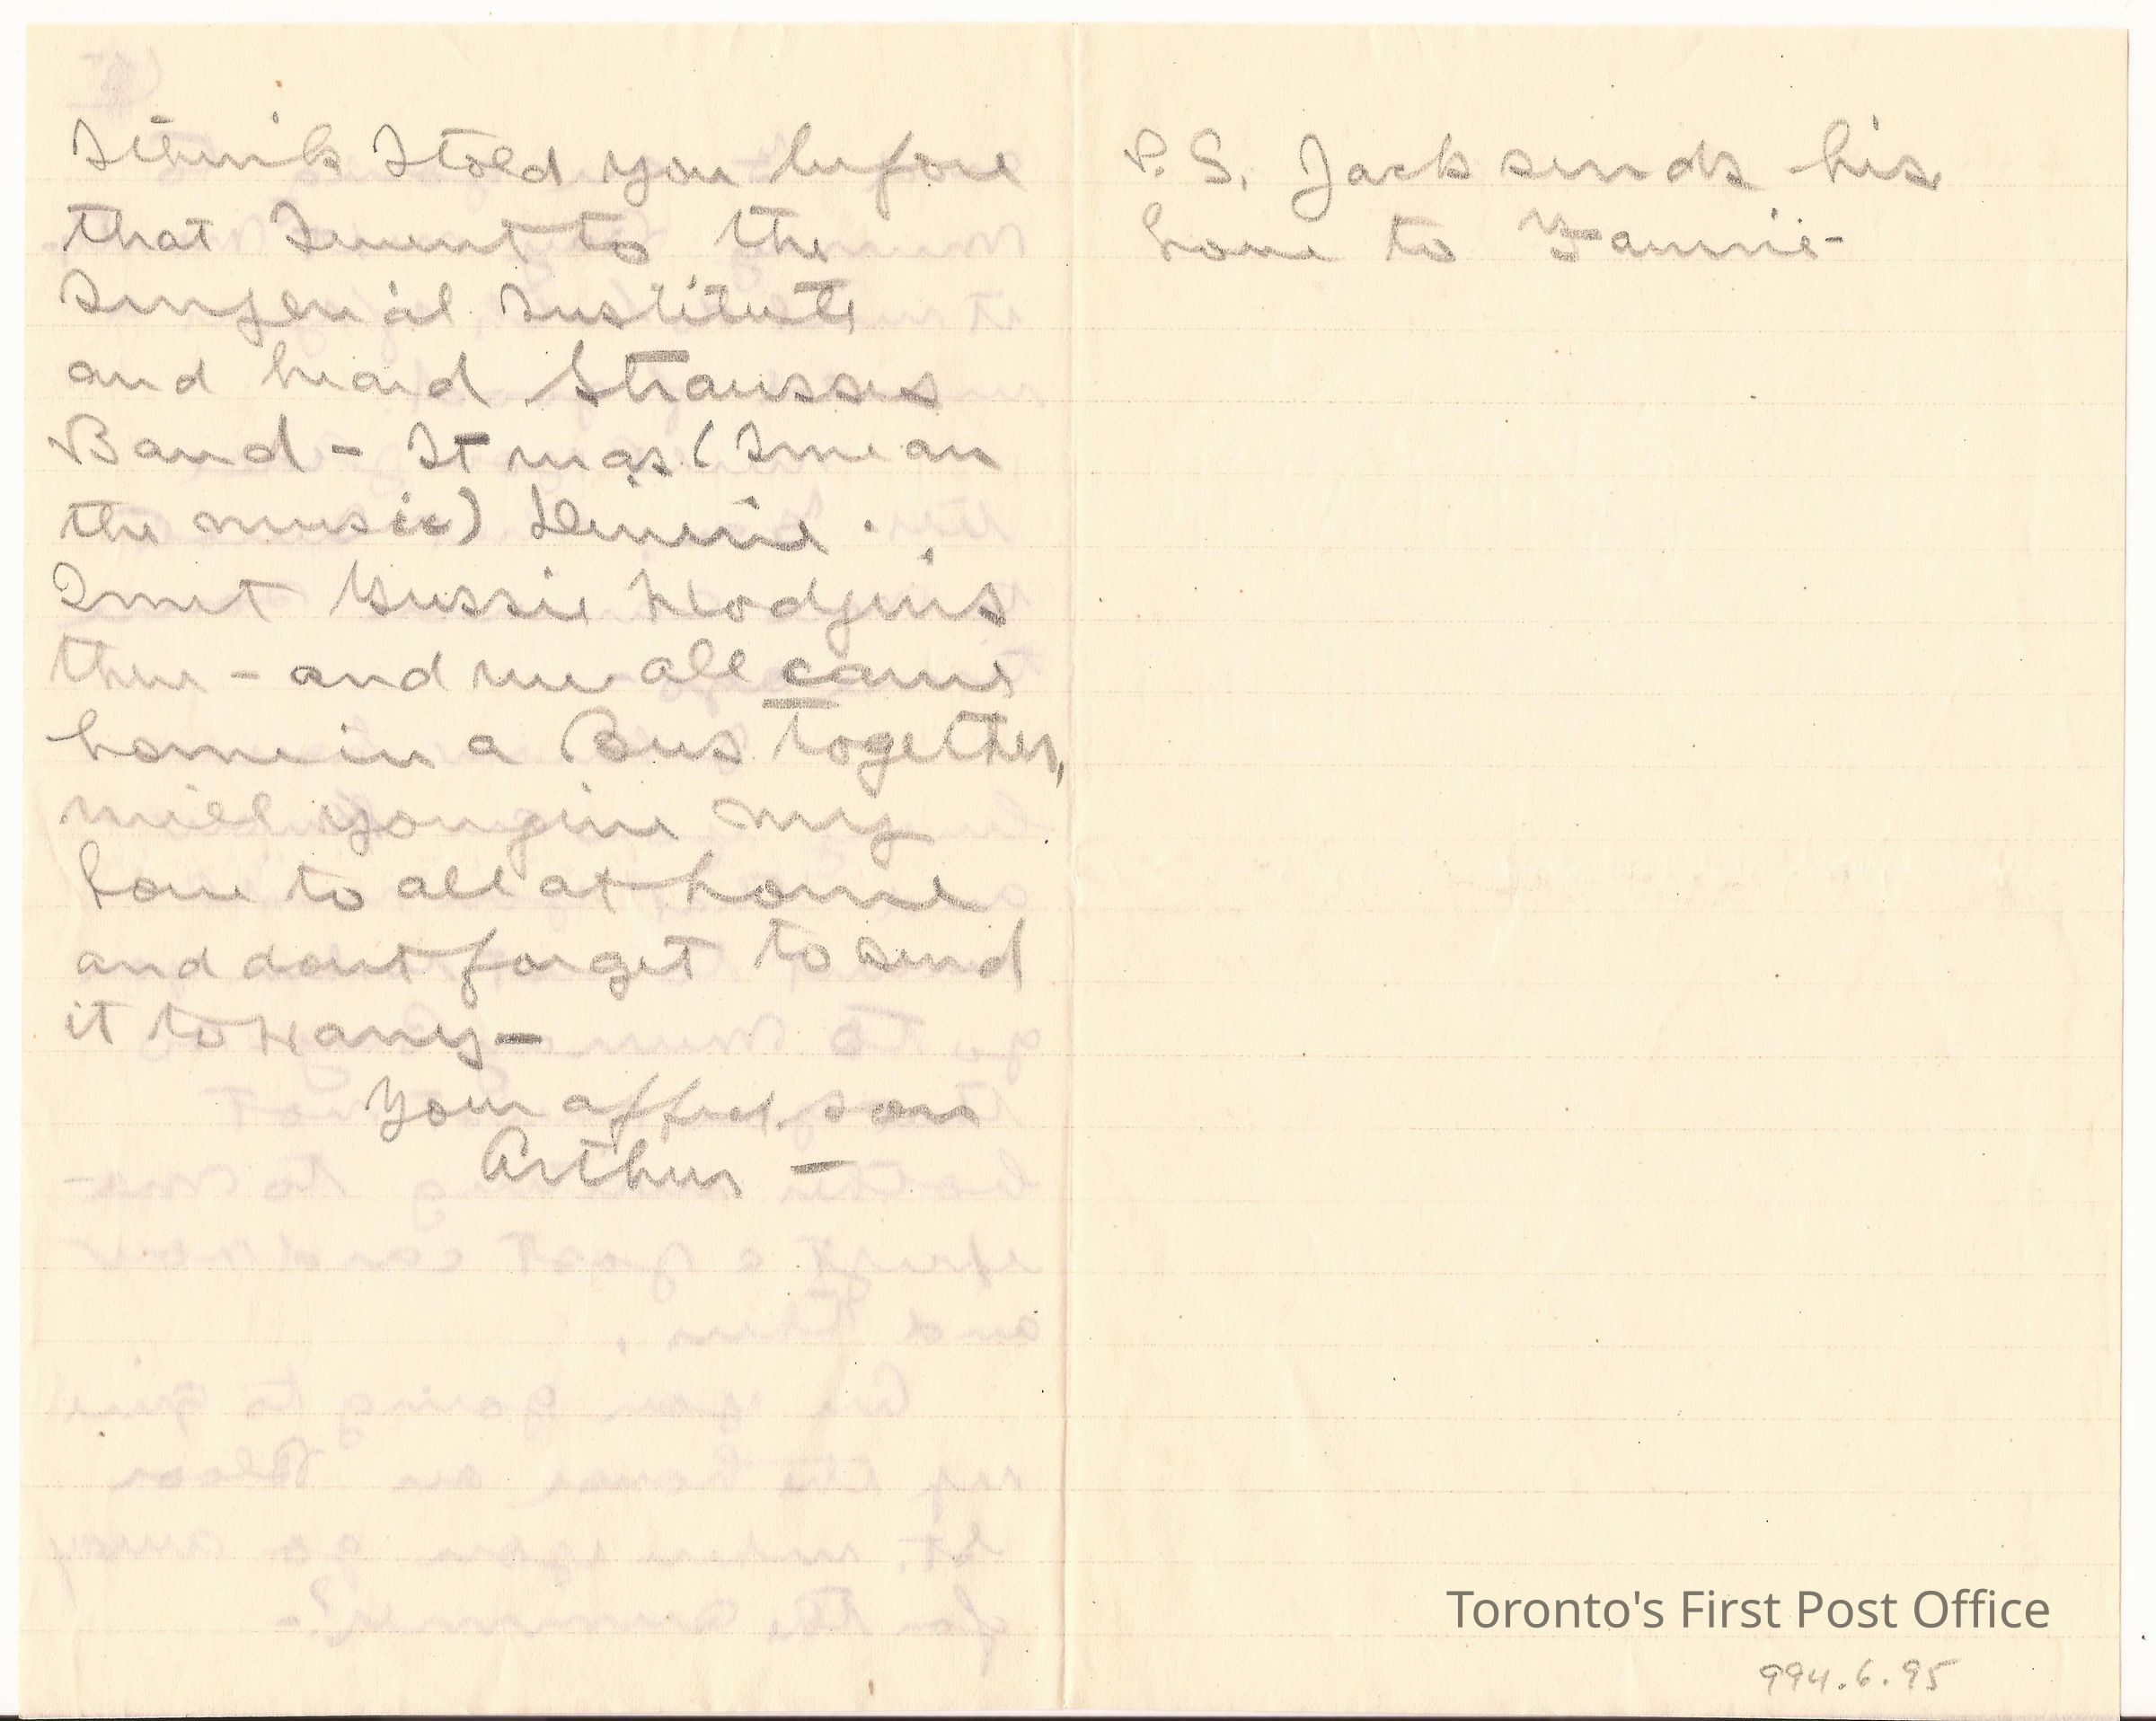 I think I told you before
that I went to the
Imperial Institute
and heard Strausses
Band - It was (I mean
the music) Devine.
I met Gussie Hodgins
there - and we all came
home in a Bus together,
will you give my
love to all at home
and dont forget to send
it to Harry -
Your affect. son
Arthur -
P.S. Jack sends his
love to Fannie -
Toronto's First Post Office
994.6.95